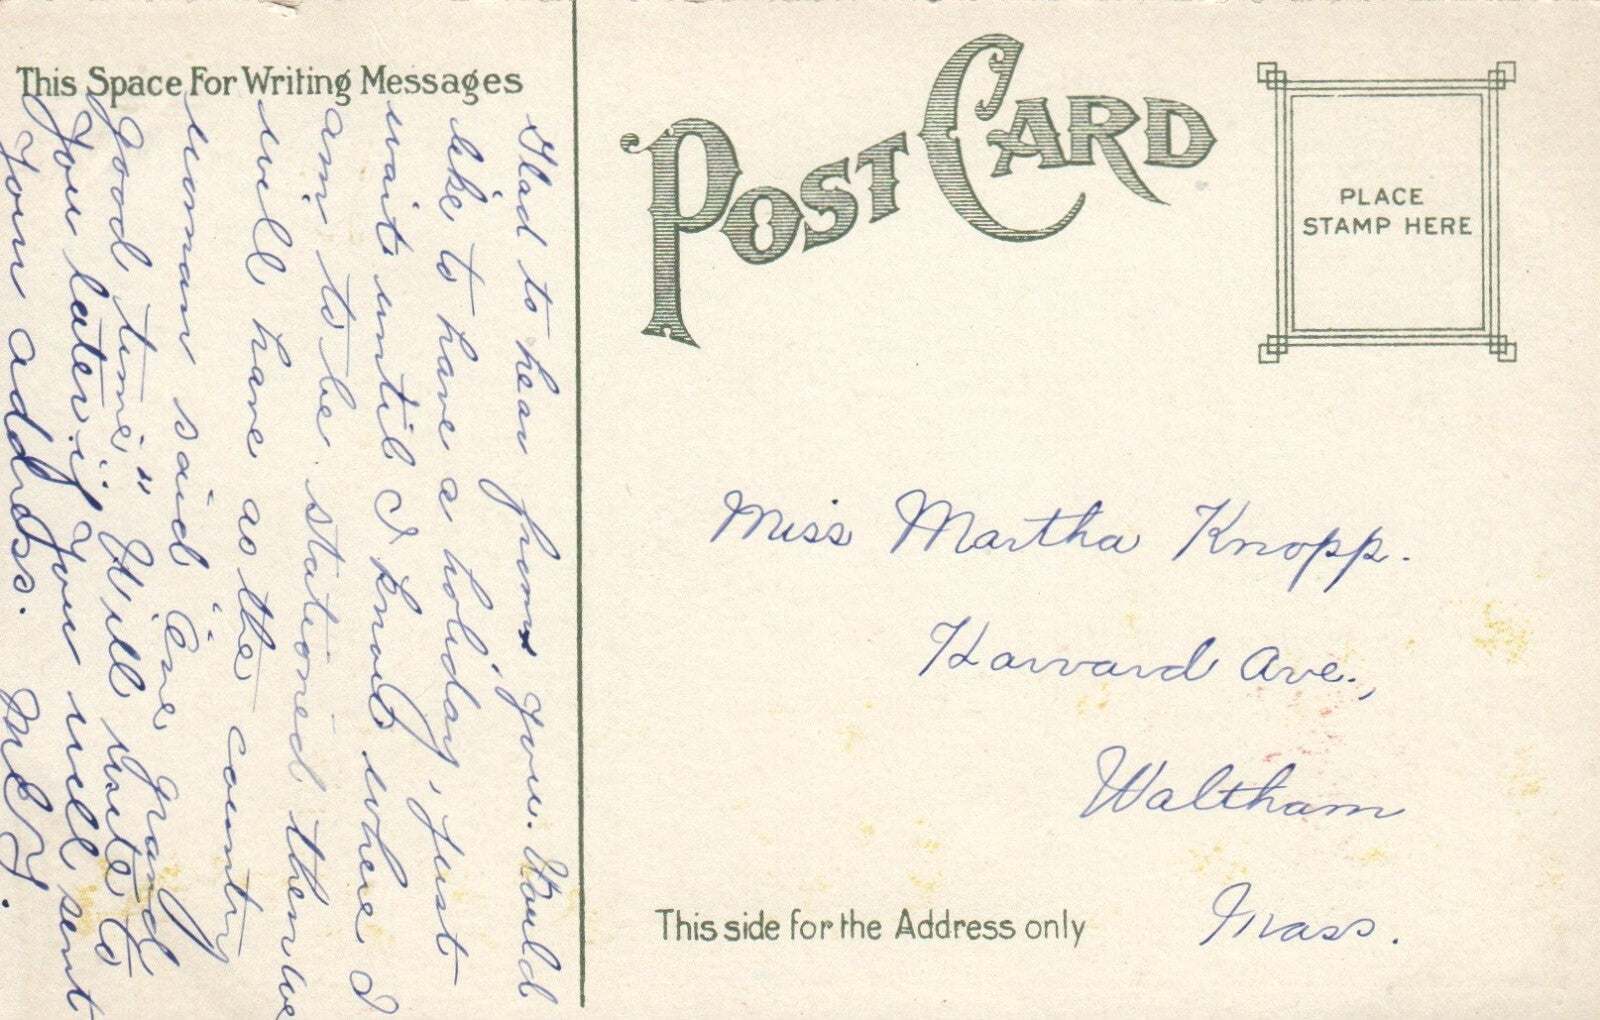 This Space For Writing Messages
Glad to hear from you. Would
like to have a holiday, just
wait until I know where I
am to be stationed then we
will have as the country
woman said "One grand
good time" Will write to
you later if you will sent
your address. M.E.Y.
POST CARD
PLACE
STAMP HERE
Miss Martha Knopp.
Harvard Ave.,
Waltham
Mass.
This side for the Address only